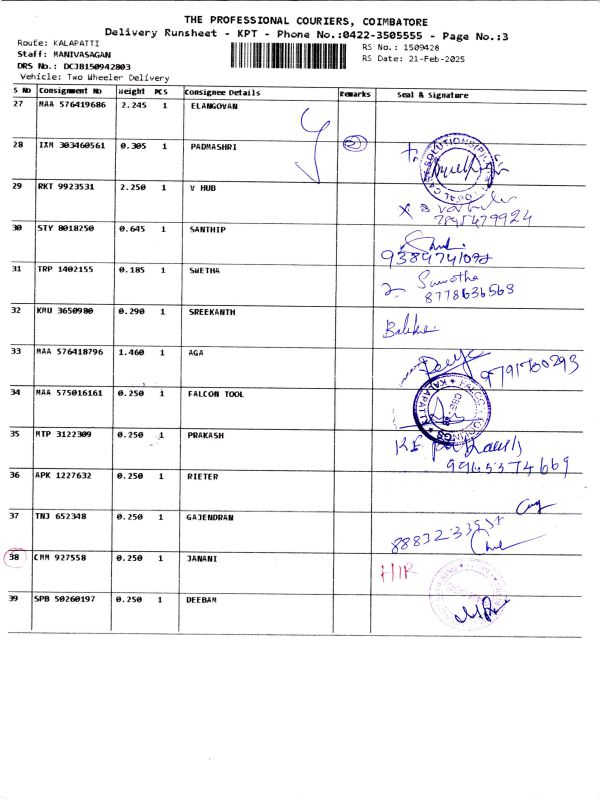 THE PROFESSIONAL COURIERS, COIMBATORE
Delivery Runsheet - KPT - Phone No.:0422-3505555 - Page No.:3
Route: KALAPATTI
RS No.: 1509428
Staff: MANIVASAGAN
RS Date: 21-Feb-2025
DRS No.: DCJB150942803
Vehicle: Two Wheeler Delivery
S No Consignment No Weight PCS Consignee Details Remarks Seal & Signature
27 MAA 576419686 2.245 1 ELANGOVAN
28 IXM 303460561 0.305 1 PADMASHRI
29 RKT 9923531 2.250 1 V HUB
30 STY 8018250 0.645 1 SANTHIP
9384741092
31 TRP 1402155 0.185 1 SWETHA
8778636568
32 KMU 3650980 0.290 1 SREEKANTH
33 MAA 576418796 1.460 1 AGA
9791700293
34 MAA 575016161 0.250 1 FALCON TOOL
35 MTP 3122309 0.250 1 PRAKASH
9965374669
36 APK 1227632 0.250 1 RIETER
37 TNJ 652348 0.250 1 GAJENDRAN
38 CMM 927558 0.250 1 JANANI
HIR
39 SPB 50260197 0.250 1 DEEBAN